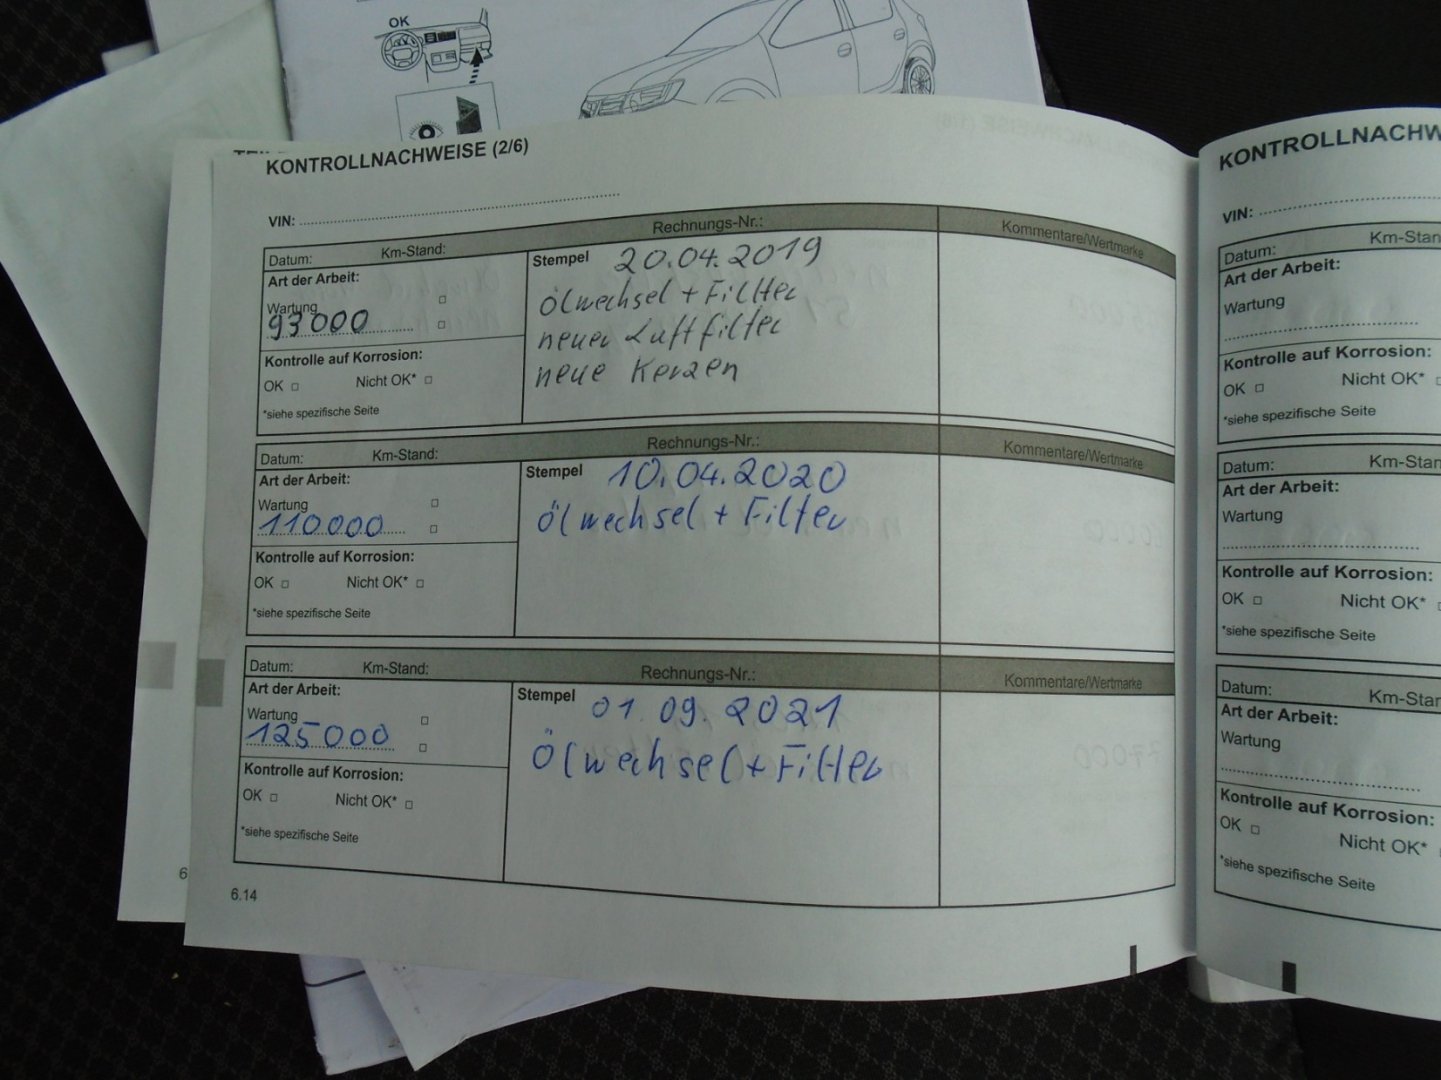 OK
KONTROLLNACHWEISE (2/6)
VIN:
Rechnungs-Nr.:
Kommentare/Wertmarke
Datum: Km-Stand:
Art der Arbeit:
Wartung
93000
Kontrolle auf Korrosion:
OK □ Nicht OK* □
*siehe spezifische Seite
Stempel 20.04.2019
Ölwechsel + Filter
neuer Luftfilter
neue Kerzen
Rechnungs-Nr.:
Kommentare/Wertmarke
Datum: Km-Stand:
Art der Arbeit:
Wartung
110000
Kontrolle auf Korrosion:
OK □ Nicht OK* □
*siehe spezifische Seite
Stempel 10.04.2020
Ölwechsel + Filter
Rechnungs-Nr.:
Kommentare/Wertmarke
Datum: Km-Stand:
Art der Arbeit:
Wartung
125000
Kontrolle auf Korrosion:
OK □ Nicht OK* □
*siehe spezifische Seite
Stempel 01.09.2021
Ölwechsel + Filter
6.14
6
KONTROLLNACHW
VIN:
Datum: Km-Stan
Art der Arbeit:
Wartung
Kontrolle auf Korrosion:
OK □ Nicht OK*
*siehe spezifische Seite
Datum: Km-Stan
Art der Arbeit:
Wartung
Kontrolle auf Korrosion:
OK □ Nicht OK*
*siehe spezifische Seite
Datum: Km-Star
Art der Arbeit:
Wartung
Kontrolle auf Korrosion:
OK □ Nicht OK*
*siehe spezifische Seite